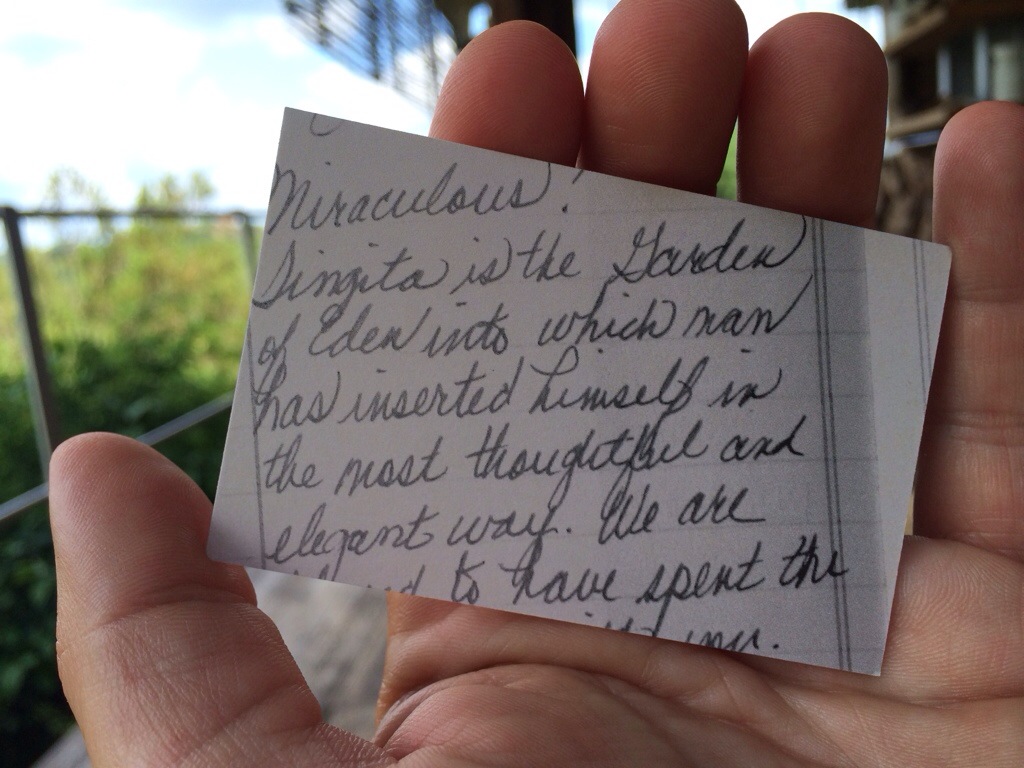 Miraculous!
Singita is the Garden
of Eden into which man
has inserted himself in
the most thoughtful and
elegant way. We are
to have spent the